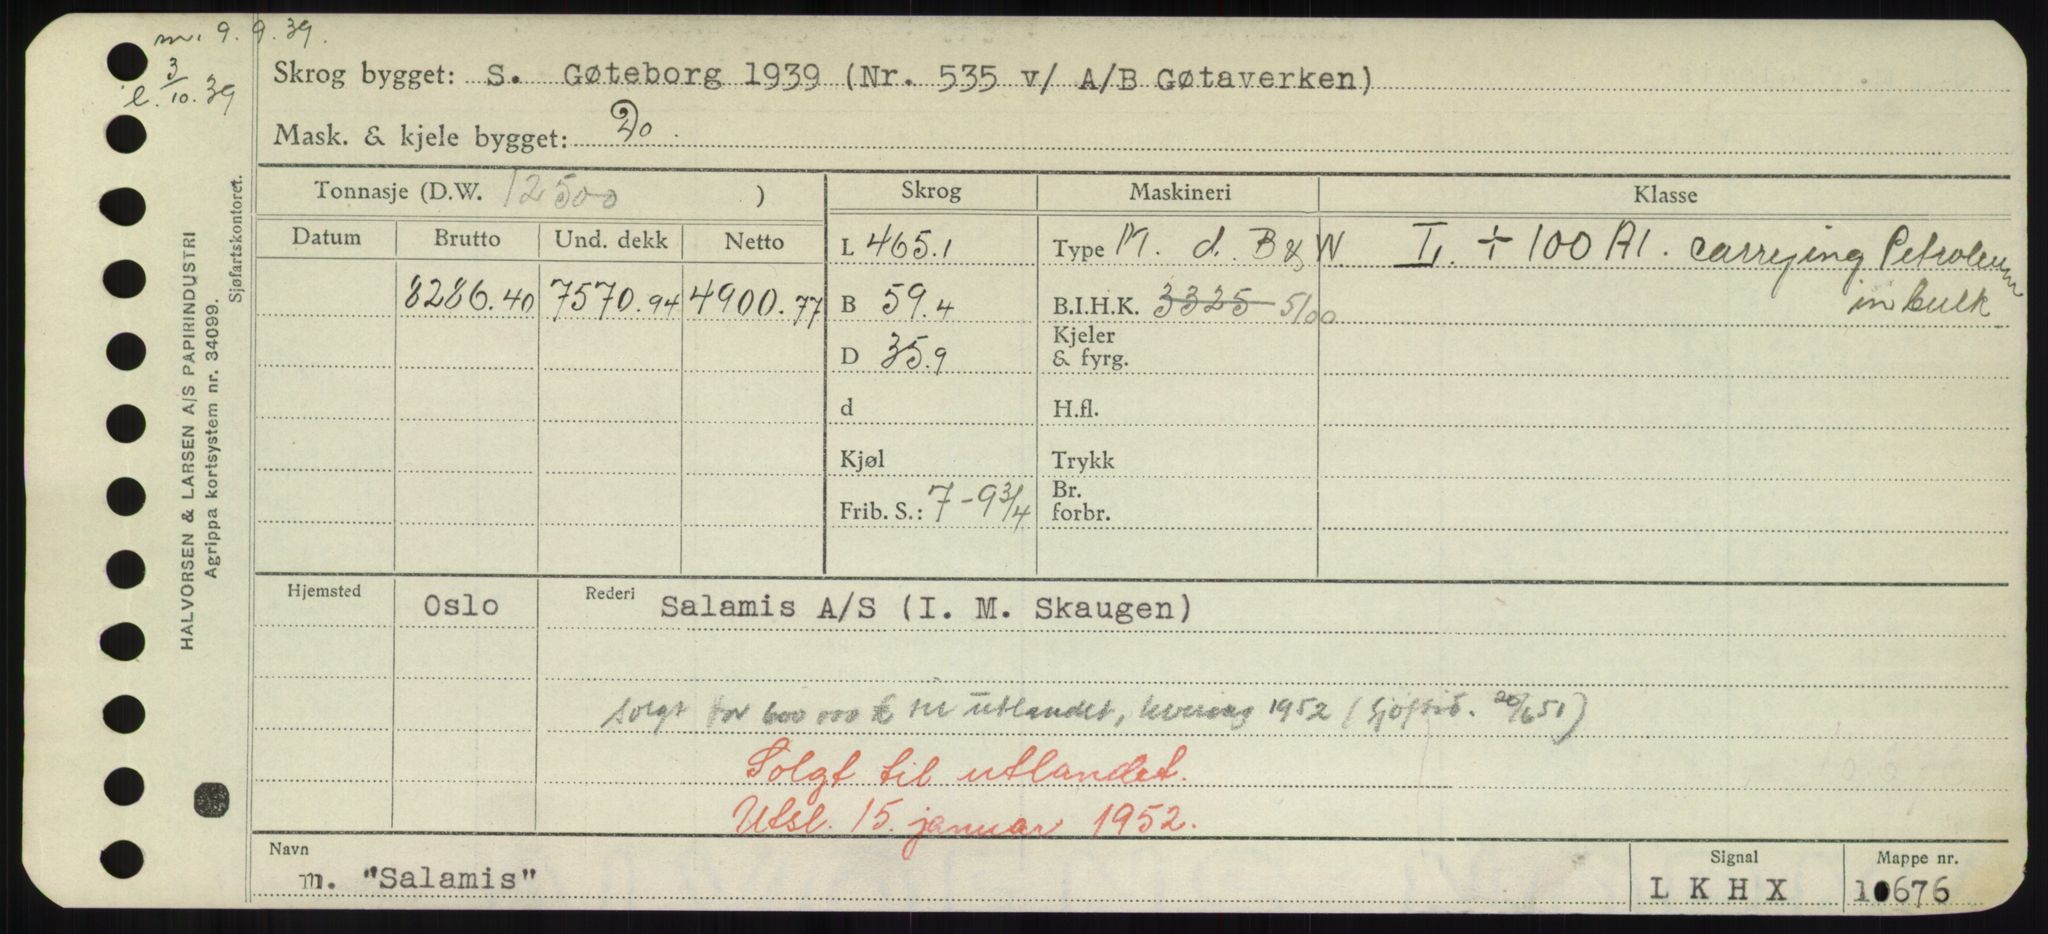 m. 9. 9. 39.
l. 3/10. 39
Skrog bygget: S. Gøteborg 1939 (Nr. 535 v/ A/B Gøtaverken)
Mask. & kjele bygget: Do.
HALVORSEN & LARSEN A/S PAPIRINDUSTRI
Agrippa kortsystem nr. 34099.
Sjøfartskontoret.
Tonnasje (D.W. 12500 ) Skrog Maskineri Klasse
Datum Brutto Und. dekk Netto L 465.1 Type M. d. B & W L. + 100 A1. carrying Petroleum
8286.40 7570.94 4900.77 B 59.4 B.I.H.K. 3325 5100 in bulk
D 35.9 Kjeler & fyrg.
d H.fl.
Kjøl Trykk
Frib. S.: 7-9 3/4 Br. forbr.
Hjemsted Oslo Rederi Salamis A/S (I. M. Skaugen)
Solgt for 600 000 £ til utlandet, levering 1952 (Sjøftid. 20/6 51)
Solgt til utlandet.
Utsl. 15. januar 1952.
Navn m. "Salamis" Signal LKHX Mappe nr. 10676